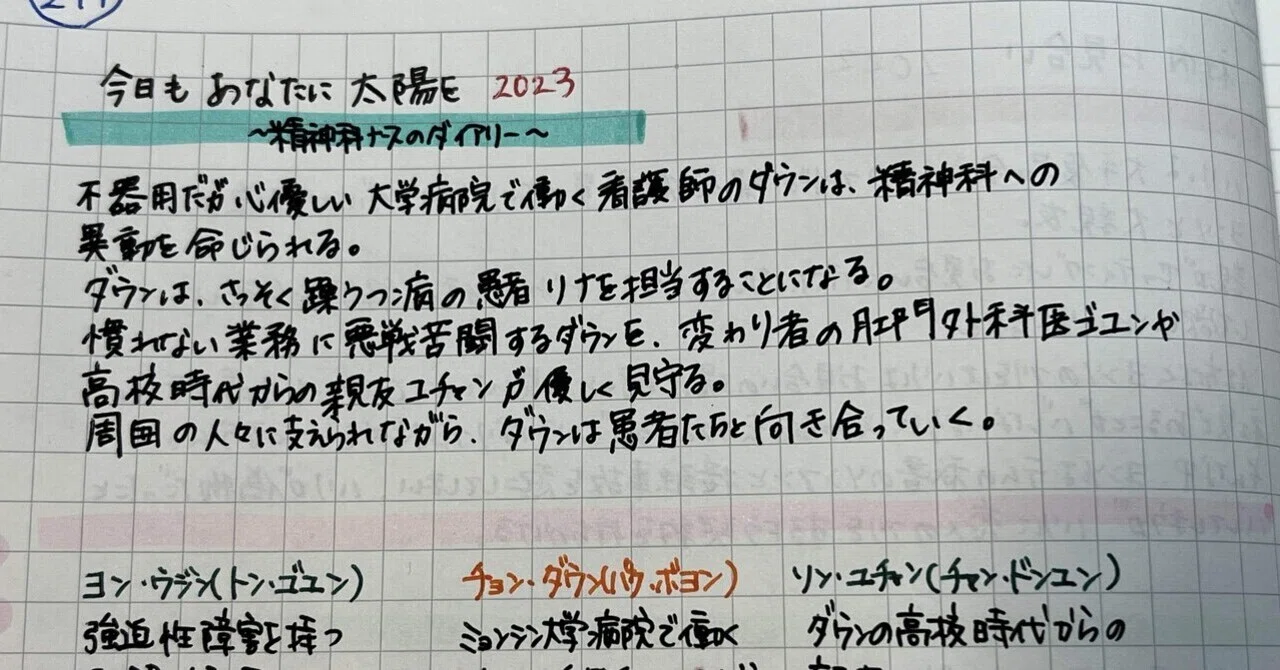 今日も あなたに 太陽を 2023
~精神科ナースのダイアリー~
不器用だが心優しい 大学病院で働く看護師のダウンは、精神科への
異動を命じられる。
ダウンは、さっそく躁うつ病の患者リナを担当することになる。
慣れない業務に悪戦苦闘するダウンを、変わり者の肛門外科医ゴユンや
高校時代からの親友ユチャンが優しく見守る。
周囲の人々に支えられながら、ダウンは患者たちと向き合っていく。
ヨン・ウジン(トン・ゴユン) チョン・ダウン(パク・ボヨン) ソン・ユチャン(チャン・ドンユン)
強迫性障害を持つ ミョンシン大学病院で働く ダウンの高校時代からの